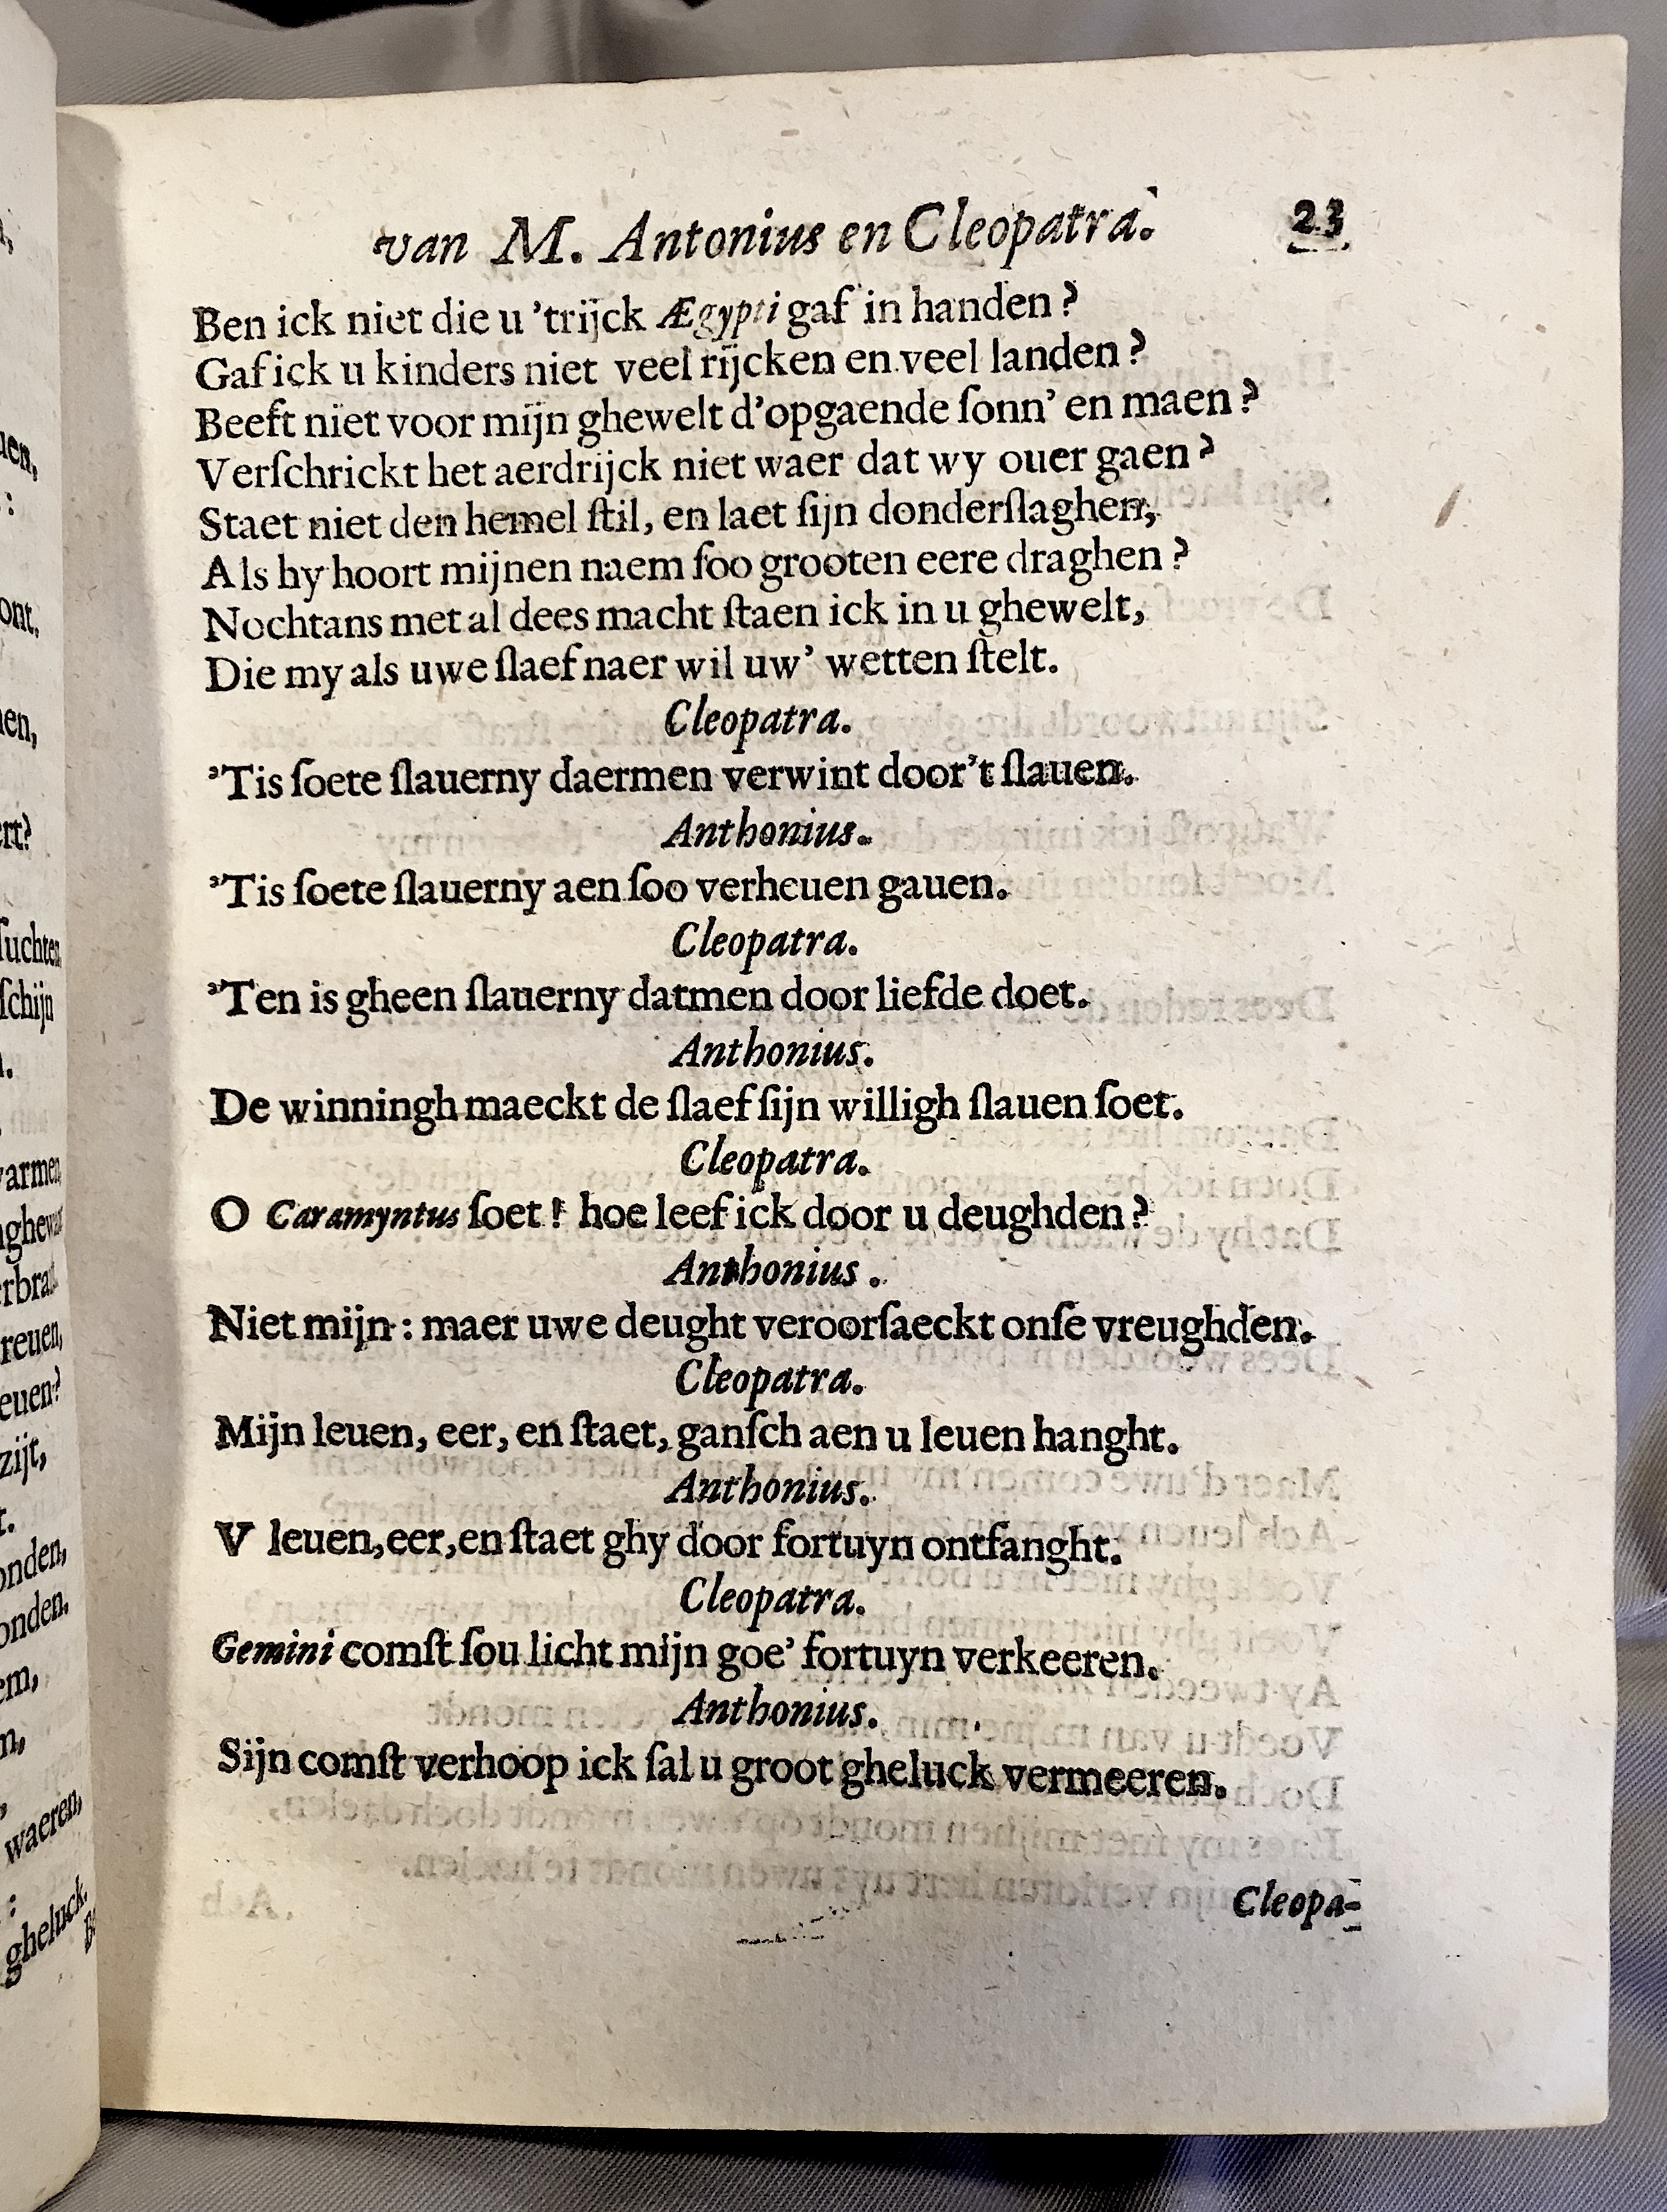 van M. Antonius en Cleopatra. 23
Ben ick niet die u 'trijck Ægypti gaf in handen?
Gaf ick u kinders niet veel rijcken en veel landen?
Beeft niet voor mijn ghewelt d'opgaende ſonn' en maen?
Verſchrickt het aerdrijck niet waer dat wy ouer gaen?
Staet niet den hemel ſtil, en laet ſijn donderſlaghen,
Als hy hoort mijnen naem ſoo grooten eere draghen?
Nochtans met al dees macht ſtaen ick in u ghewelt,
Die my als uwe ſlaef naer wil uw' wetten ſtelt.
Cleopatra.
'Tis ſoete ſlauerny daermen verwint door't ſlauen.
Anthonius.
'Tis ſoete ſlauerny aen ſoo verheuen gauen.
Cleopatra.
'Ten is gheen ſlauerny datmen door liefde doet.
Anthonius.
De winningh maeckt de ſlaef ſijn willigh ſlauen ſoet.
Cleopatra.
O Caramyntus ſoet! hoe leef ick door u deughden?
Anthonius.
Niet mijn: maer uwe deught veroorſaeckt onſe vreughden.
Cleopatra.
Mijn leuen, eer, en ſtaet, ganſch aen u leuen hanght.
Anthonius.
V leuen, eer, en ſtaet ghy door fortuyn ontfanght.
Cleopatra.
Gemini comſt ſou licht mijn goe' fortuyn verkeeren.
Anthonius.
Sijn comſt verhoop ick ſal u groot gheluck vermeeren.
Cleopa-